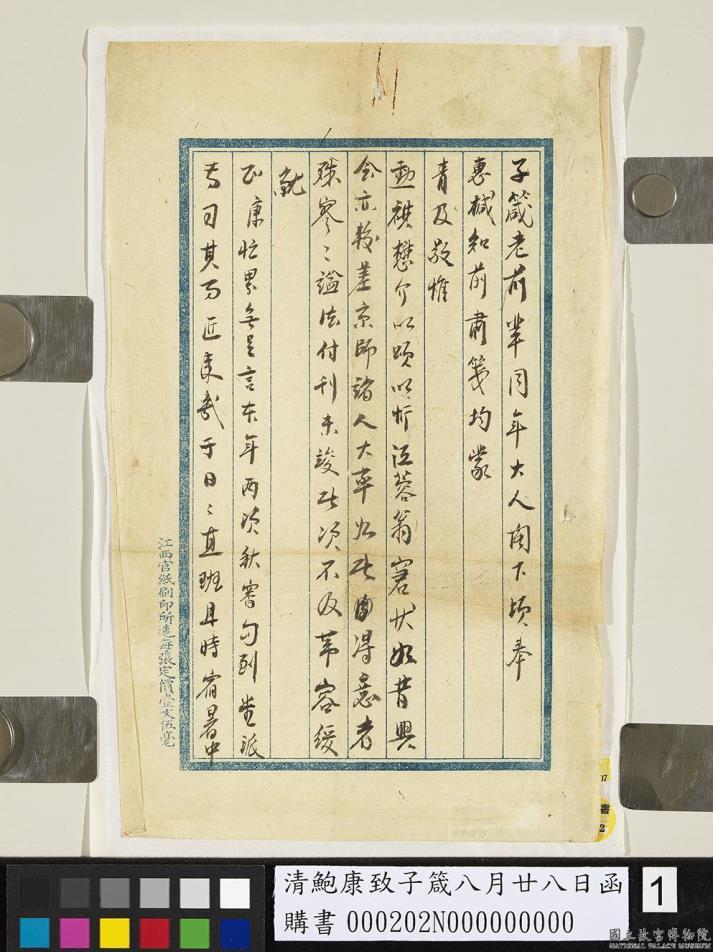 子箴老前輩同年大人閣下頃奉
惠椷知前肅箋均蒙
青及敬惟
勛祺懋介以頌以忻江蓉翁窘狀如昔興
會亦較差京師諸人大率如此自得意者
殊寥〻謚法付刊未竣此次不及帶容緩
就
正康忙累無足言本年兩次秋審勾到堂派
專司其事近來幾于日〻直班且時宿署中
江西官紙刷印所造每張定價壹文伍毫
清鮑康致子箴八月廿八日函
購書 000202N000000000
1
07
書
2
國立故宮博物院
NATIONAL PALACE MUSEUM